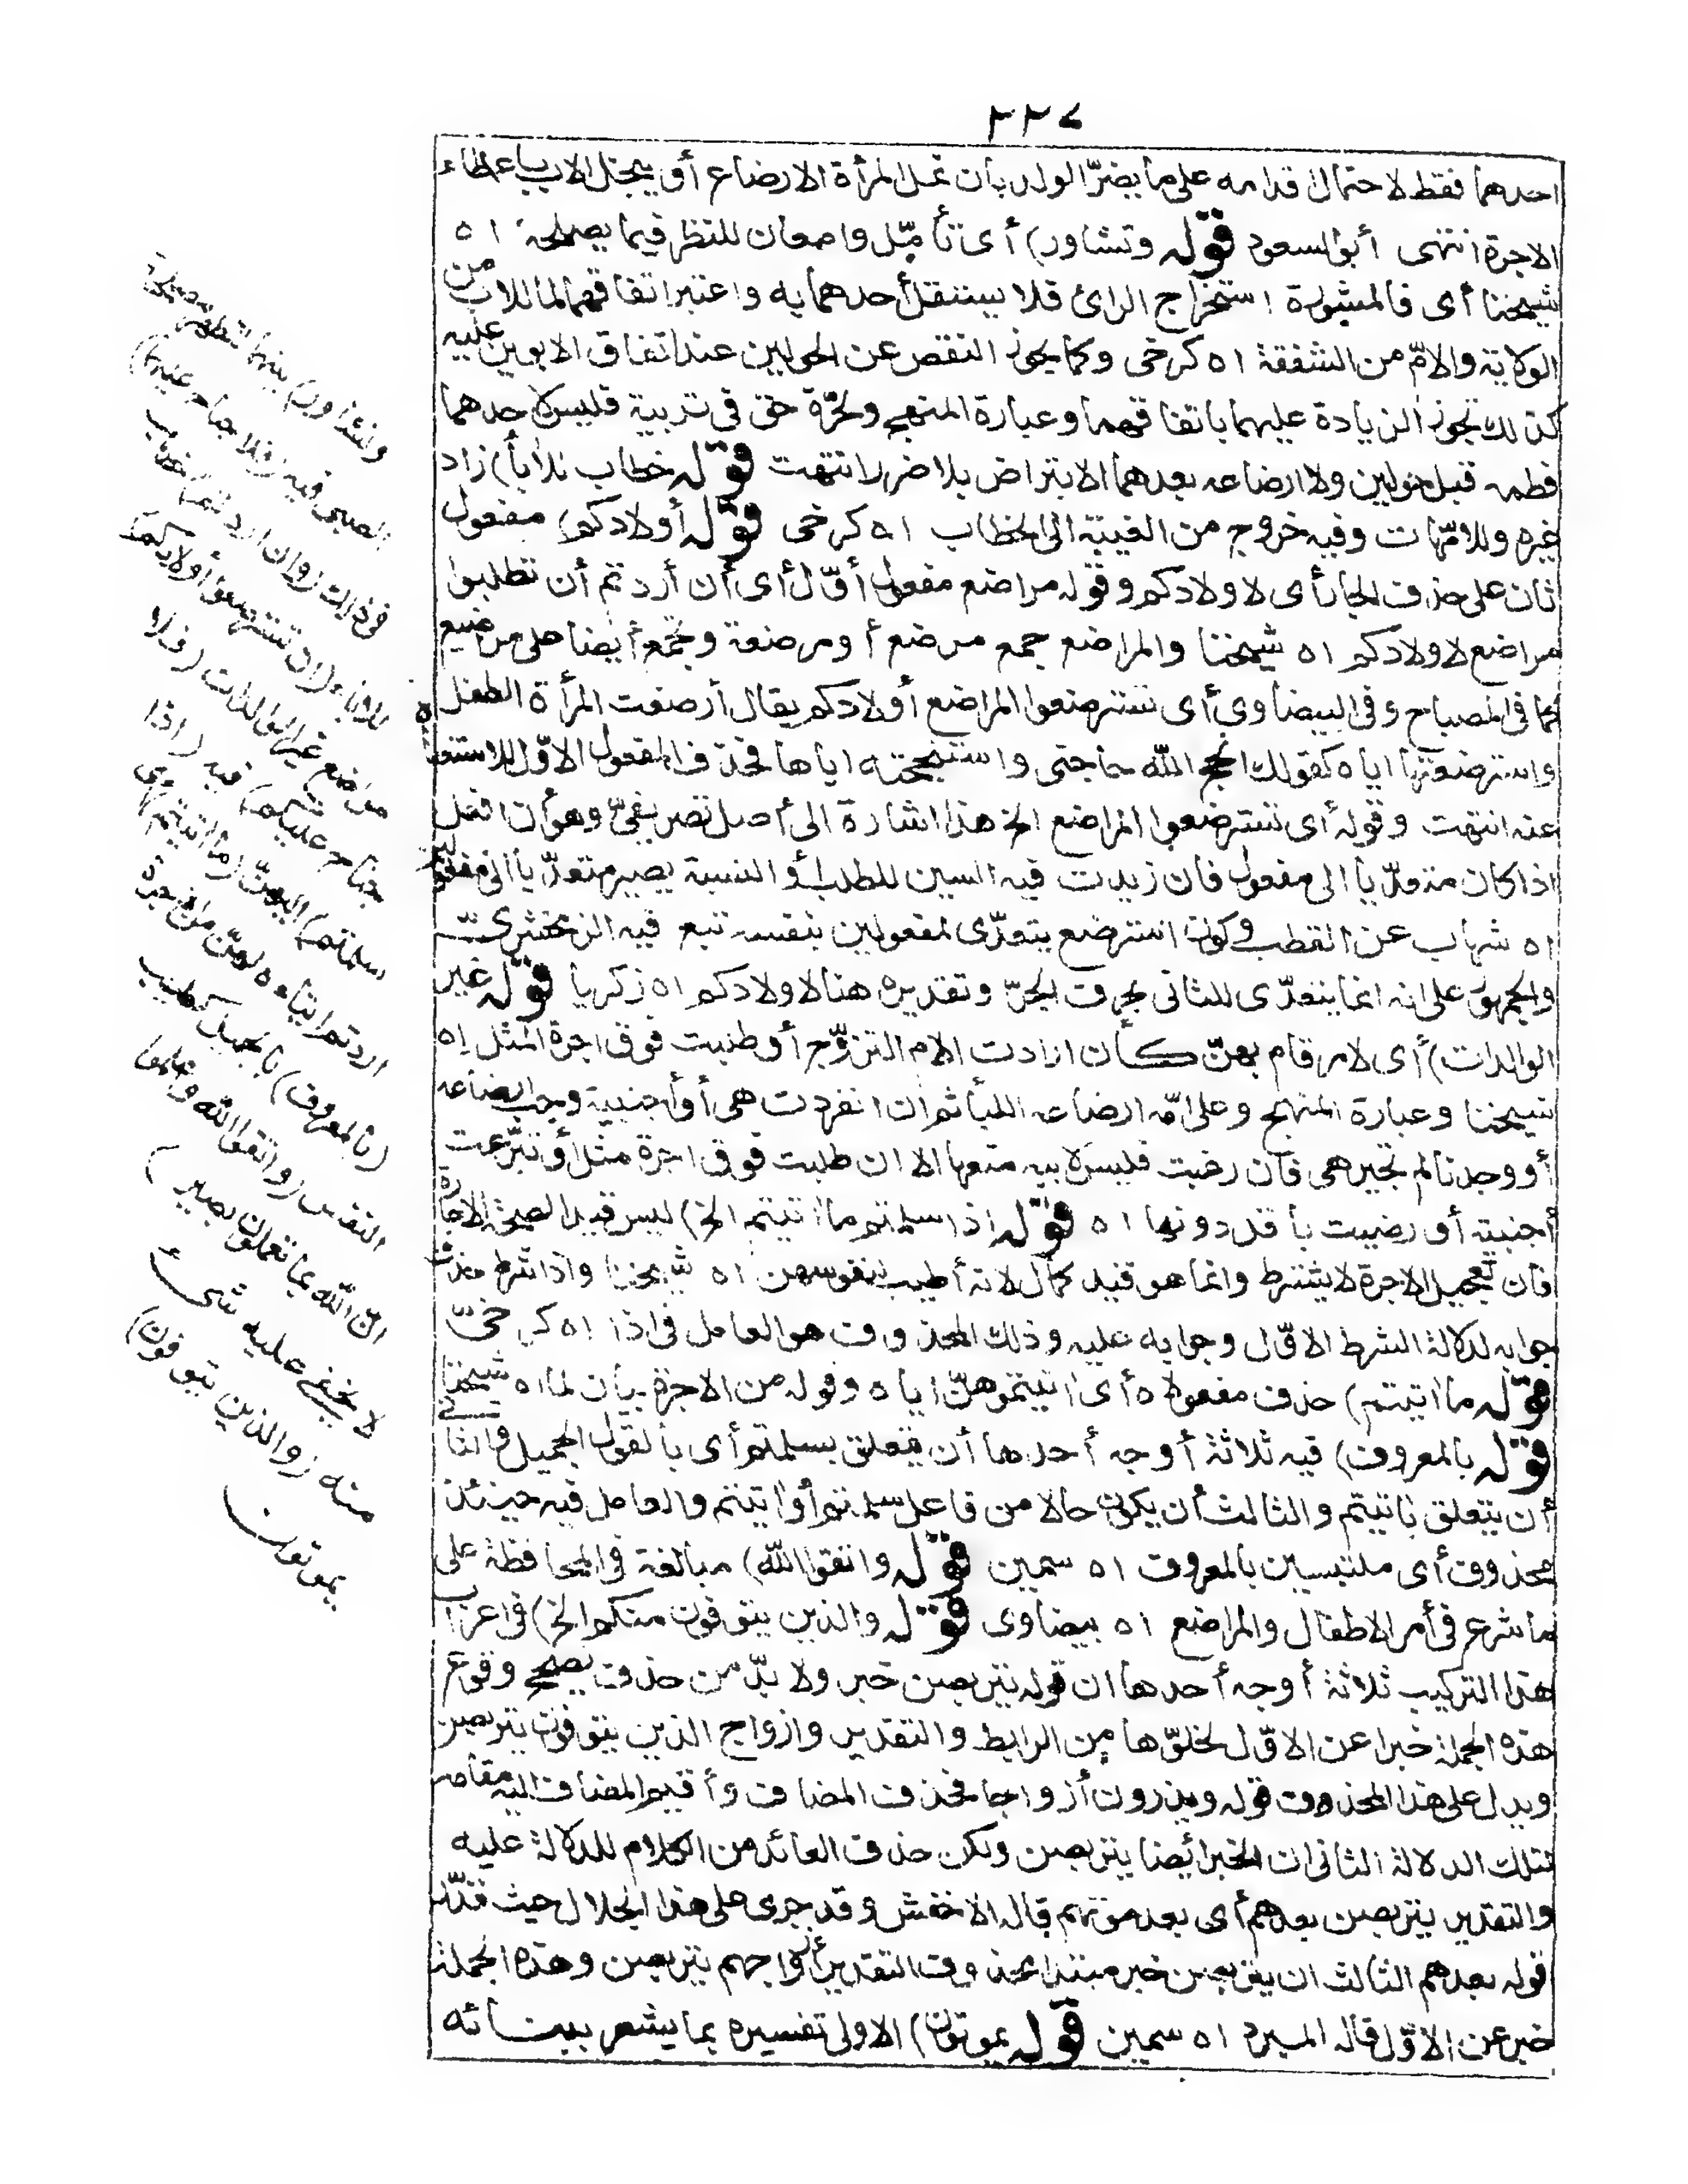 ٢٢٧
احدهما فقط لاحتمال اقدامه على ما يضرّ الولد بأن تمل المرأة الارضاع أو يبخل الاب باعطاء
الاجرة انتهى أبو السعود قوله وتشاور) أى تأمّل وامعان للنظر فيما يصلحه اه
شيخنا أى فالمشورة استخراج الرائ فلا يستقل أحدهما به واعتبر اتفاقهما لما للاب من
الولاية والامّ من الشفقة اه كرخى وكما يجوز النقص عن الحولين عند اتفاق الابوين عليه
كذلك تجوز الزيادة عليهما باتفاقهما وعبارة المنهج ولحرّة حق فى تربية فليس لاحدهما
فطمه قبل حولين ولا ارضاعه بعدهما الا بتراض بلا ضرر انتهت قوله خطاب للآباء) زاد
غيره وللامّهات وفيه خروج من الغيبة الى الخطاب اه كرخى قوله أولادكم) مفعول
ثان على حذف الجار أى لاولادكم وقوله مراضع مفعول أوّل أى أن أردتم أن تطلبوا
مراضع لاولادكم اه شيخنا والمراضع جمع مرضع أو مرضعة وتجمع أيضا على مراضيع
كما فى المصباح وفى البيضاوى أى تسترضعوا المراضع أولادكم يقال أرضعت المرأة الطفل
واسترضعتها اياه كقولك انجح الله حاجتى واستنجحته اياها فحذف المفعول الاوّل للاستغناء
عنه انتهت وقوله أى تسترضعوا المراضع الخ هذا اشارة الى أصل تصريفىّ وهو أن افعل
اذا كان متعدّيا الى مفعول فان زيدت فيه السين للطلب أو النسبة يصير متعدّيا الى مفعولين
اه شهاب عن القطب وكون استرضع يتعدّى لمفعولين بنفسه تبع فيه الزمخشرى
والجمهور على انه انما يتعدّى للثانى بحرف الجرّ وتقديره هنا لاولادكم اه زكريا قوله غير
الوالدات) أى لامر قام بهنّ كأن ارادت الام التزوّج أو طلبت فوق اجرة المثل اه
شيخنا وعبارة المنهج وعلى امّه ارضاعه اللبأ ثم ان انفردت هى أو أجنبية وجب ارضاعه
أو وجدتا لم تجبر هى فان رغبت فليس لابيه منعها الا ان طلبت فوق اجرة مثل أو تبرّعت
أجنبية أو رضيت بأقل دونها اه قوله اذا سلمتم ما آتيتم الخ) ليس قيدا لصحة الاجارة
فان تعجيل الاجرة لا يشترط وانما هو قيد كمال لانه أطيب لنفوسهن اه شيخنا واذا شرط حذف
جوابه لدلالة الشرط الاوّل وجوابه عليه وذلك المحذوف هو العامل فى اذا اه كرخىّ
قوله ما آتيتم) حذف مفعولاه أى آتيتموهنّ اياه وقوله من الاجرة بيان لما اه شيخنا
قوله بالمعروف) فيه ثلاثة أوجه أحدها أن يتعلق بسلمتم أى بالقول الجميل والثانى
أن يتعلق بآتيتم والثالث أن يكون حالا من فاعل سلمتم أو آتيتم والعامل فيه حينئذ
محذوف أى ملتبسين بالمعروف اه سمين قوله واتقوا الله) مبالغة فى المحافظة على
ما شرع فى أمر الاطفال والمراضع اه بيضاوى قوله والذين يتوفون منكم الخ) فى اعراب
هذا التركيب ثلاثة أوجه أحدها ان قوله يتربصن خبر ولا بدّ من حذف يصحح وقوع
هذه الجملة خبرا عن الاوّل لخلوّها من الرابط والتقدير وازواج الذين يتوفون يتربصن
ويدل على هذا المحذوف قوله ويذرون أزواجا فحذف المضاف وأقيم المضاف اليه مقامه
لتلك الدلالة الثانى ان الخبر أيضا يتربصن ولكن حذف العائد من الكلام للدلالة عليه
والتقدير يتربصن بعدهم أى بعد موتهم قاله الاخفش وقد جرى على هذا الجلال حيث قدّر
قوله بعدهم الثالث ان يتربصن خبر مبتدا محذوف التقدير أزواجهم يتربصن وهذه الجملة
خبر عن الاوّل قاله المبرد اه سمين قوله يموتون) الاولى تفسيره بما يشعر ببنائه
وتشاور) بينهما لتظهر مصلحة
الصبى فيه (فلا جناح عليهما)
فى ذلك (وان اردتم) خطاب
للآباء (ان تسترضعوا أولادكم)
مراضع غير الوالدات (فلا
جناح عليكم) فيه (اذا
سلمتم) اليهنّ (ما آتيتم) أى
اردتم ايتاءه لهنّ من الاجرة
(بالمعروف) بالجميل كطيب
النفس (واتقوا الله واعلموا
انّ الله بما تعملون بصير)
لا يخفى عليه شئ
منه (والذين يتوفون)
يموتون